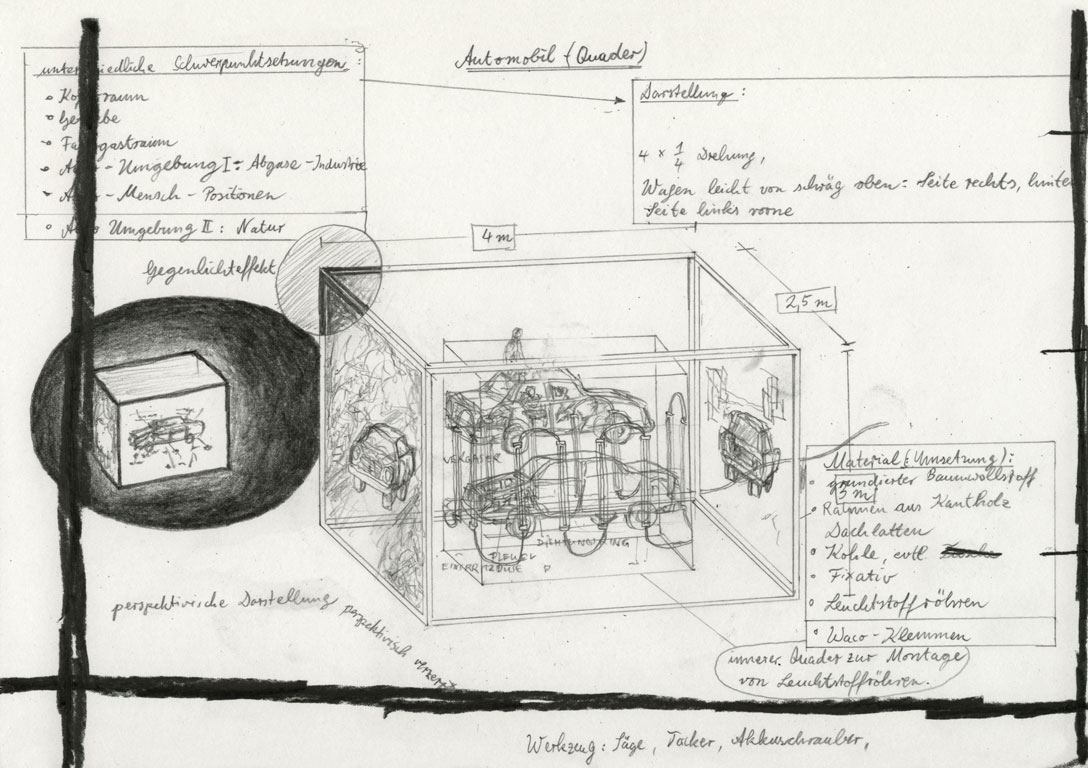 Automobil (Quader)
unterschiedliche Schwerpunktsetzungen:
Kofferraum
Getriebe
Fahrgastraum
Auto - Umgebung I: Abgase - Industrie
Auto - Mensch - Positionen
Auto Umgebung II: Natur
Darstellung:
4 × 1/4 Drehung,
Wagen leicht von schräg oben: Seite rechts, hinten
Seite links vorne
4 m
Gegenlichteffekt
2,5 m
VERGASER
DICHTUNGSRING
PLEUEL
Material (Umsetzung):
grundierter Baumwollstoff
3 m
Rahmen aus Kantholz
Dachlatten
Kohle, evtl
Fixativ
Leuchtstoffröhren
Waco-Klemmen
perspektivische Darstellung
perspektivisch verzerrt
innerer Quader zur Montage
von Leuchtstoffröhren.
Werkzeug: Säge, Tacker, Akkuschrauber,